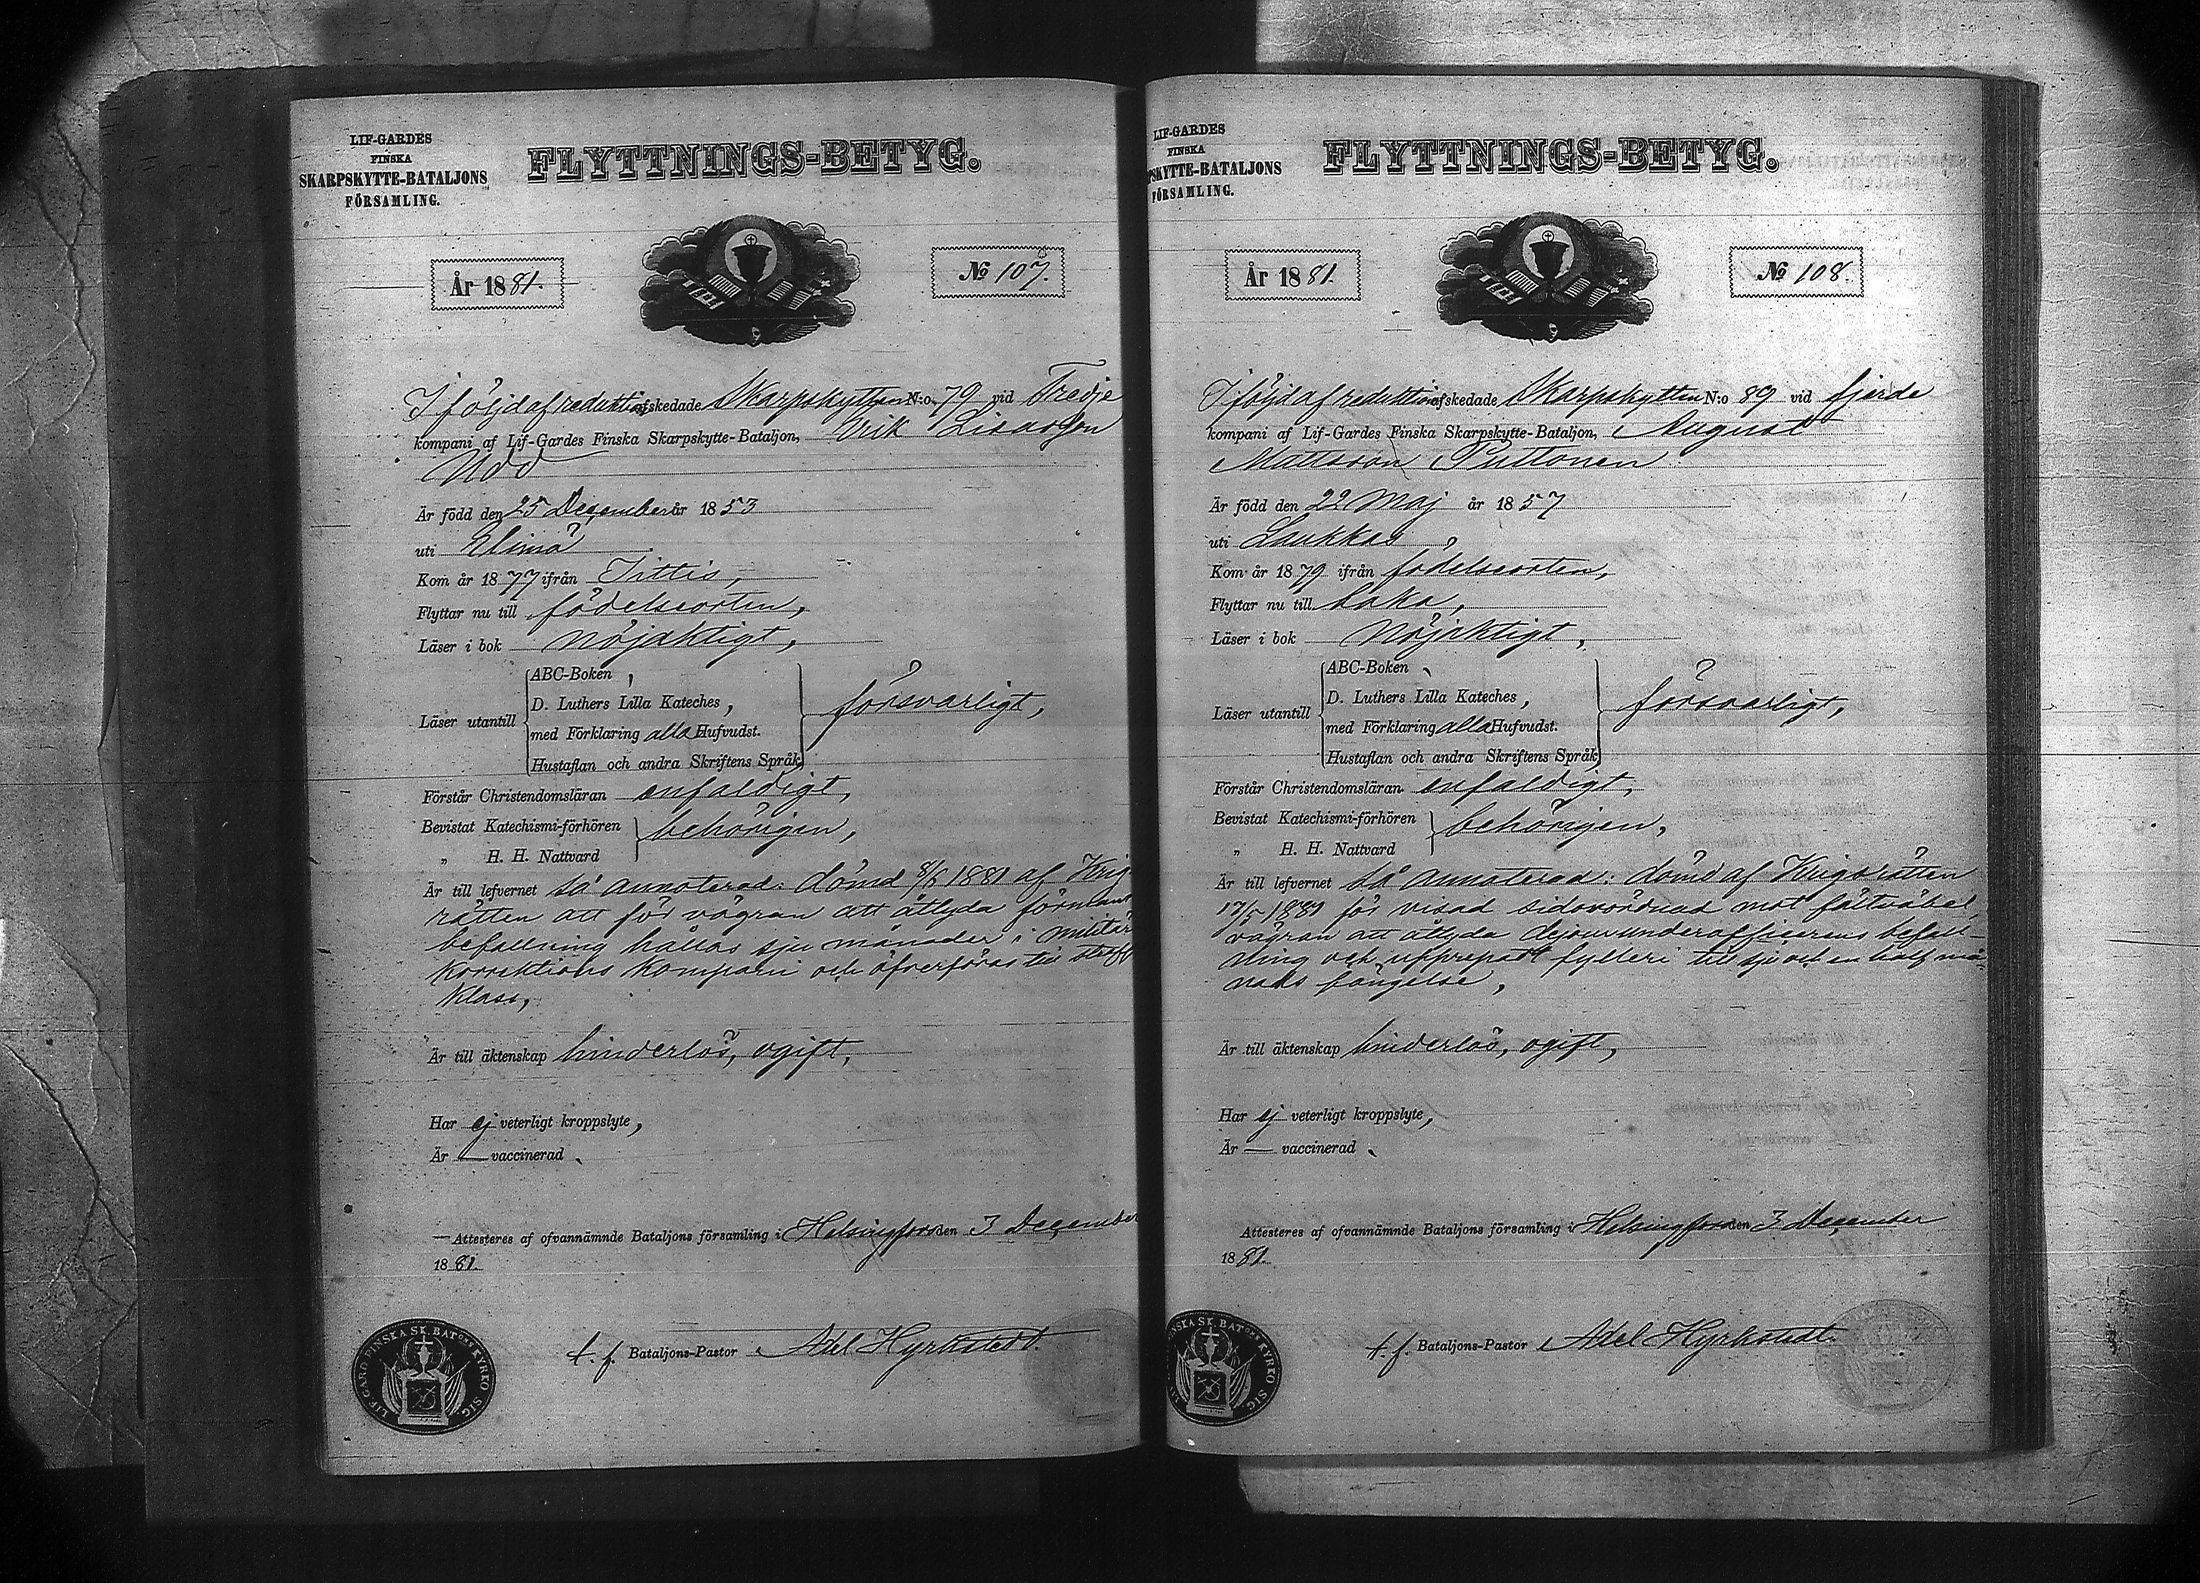 LIF-GARDES
FINSKA
SKARPSKYTTE-BATALJONS
FÖRSAMLING.
FLYTTNINGS-BETYG.
År 1881.
№ 107.
I följd af reduktion afskedade Skarpskytten N:o 79 vid Tredje
kompani af Lif-Gardes Finska Skarpskytte-Bataljon, Erik
Udd
Är född den 25 December år 1853
uti Elimä
Kom år 1877 ifrån Sittis,
Flyttar nu till födelseorten,
Läser i bok nöjaktigt,
Läser utantill
ABC-Boken,
D. Luthers Lilla Kateches,
med Förklaring alla Hufvudst.
Hustaflan och andra Skriftens Språk
försvarligt,
Förstår Christendomsläran enfaldigt,
Bevistat Katechismi-förhören
„ H. H. Nattvard
behörigen,
Är till lefvernet så annoterad: dömd 8/8 1881 af Krigs
rätten att för vägran att åtlyda förmans
befallning hållas sju månader i militär
korrektions kompani och öfverföras till straff
klass,
Är till äktenskap hinderlös, ogift,
Har ej veterligt kroppslyte,
Är — vaccinerad.
Attesteres af ofvannämnde Bataljons församling i Helsingfors den 3 December
1881.
t. f. Bataljons-Pastor Adel Hyrkstedt.
LIF.GARD.FINSKA SK.BATONS KYRKO SIG.
LIF-GARDES
FINSKA
PSKYTTE-BATALJONS
FÖRSAMLING.
FLYTTNINGS-BETYG.
År 1881.
№ 108.
I följd af reduktion afskedade Skarpskytten N:o 89 vid fjerde
kompani af Lif-Gardes Finska Skarpskytte-Bataljon, August
Mattsson Puttonen
Är född den 22 Maj år 1857
uti Laukkas
Kom år 1879 ifrån födelseorten,
Flyttar nu till
Läser i bok nöjaktigt,
Läser utantill
ABC-Boken,
D. Luthers Lilla Kateches,
med Förklaring alla Hufvudst.
Hustaflan och andra Skriftens Språk
försvarligt,
Förstår Christendomsläran enfaldigt,
Bevistat Katechismi-förhören
„ H. H. Nattvard
behörigen,
Är till lefvernet så annoterad: dömd af Krigsrätten
17/5 1881 för visad sidovördnad mot fältväbel,
vägran att åtlyda dejourunderofficerens befall-
ning och upprepadt fylleri till sju och en half må-
nads fängelse,
Är till äktenskap hinderlös, ogift,
Har ej veterligt kroppslyte,
Är — vaccinerad.
Attesteres af ofvannämnde Bataljons församling i Helsingfors den 3 December
1881.
t. f. Bataljons-Pastor Adel Hyrkstedt.
FINSKA SK.BATONS KYRKO SIG.